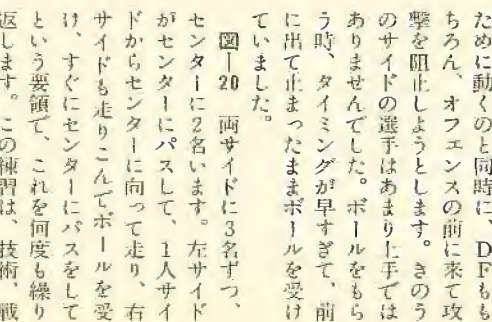 ために動くのと同時に、DFもも
ちろん、オフェンスの前に来て攻
撃を阻止しようとします。きのう
のサイドの選手はあまり上手では
ありませんでした。ボールをもら
う時、タイミングが早すぎて、前
に出て止まったままボールを受け
ていました。
図―20　両サイドに3名ずつ、
センターに2名います。左サイド
がセンターにパスして、1人サイ
ドからセンターに向って走り、右
サイドも走りこんでボールを受
け、すぐにセンターにパスをして
という要領で、これを何度も繰り
返します。この練習は、技術、戦